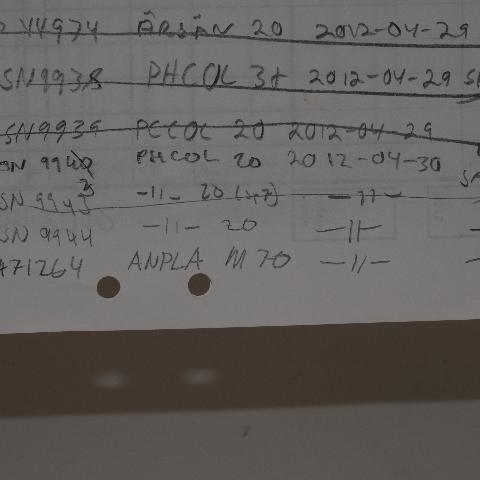 244974 ÄRSÄN 20 2012-04-29
SN9938 PHCOL 3+ 2012-04-29
SN9939 PCCOL 20 2012-04-29
SN 9940 PHCOL 20 2012-04-30
SN 9943 -11- 20 -11-
SN 9944 -11- 20 -11-
A71264 ANPLA M 70 -11-